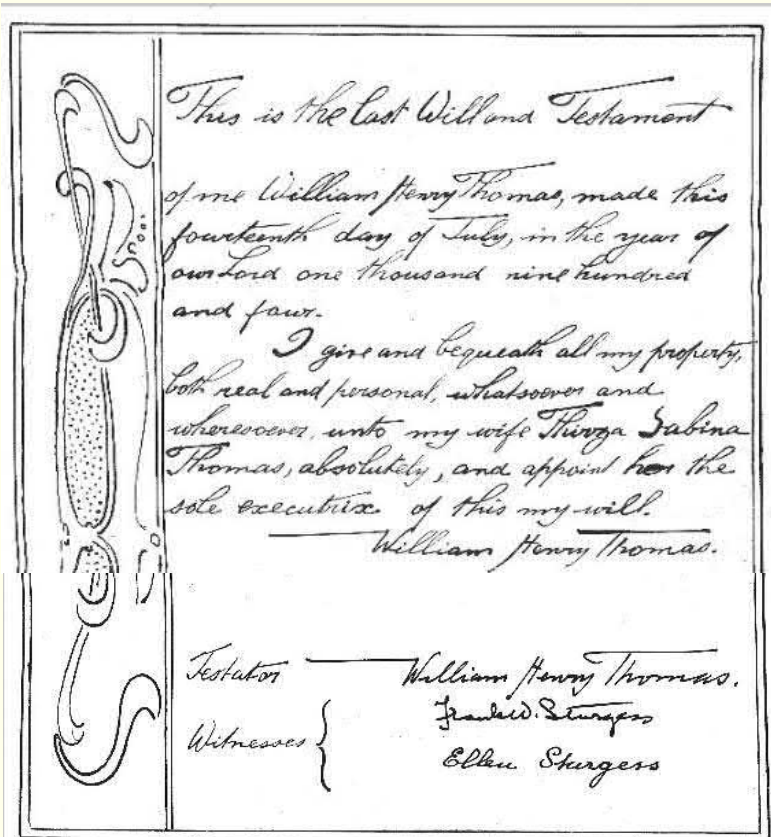 This is the last Will and Testament
of me William Henry Thomas, made this
fourteenth day of July, in the year of
our Lord one thousand nine hundred
and four.
I give and bequeath all my property,
both real and personal, whatsoever and
wheresoever, unto my wife Thirza Sabina
Thomas, absolutely, and appoint her the
sole executrix of this my will.
William Henry Thomas.
Testator William Henry Thomas.
Frank W. Sturgess
Witnesses
Ellen Sturgess